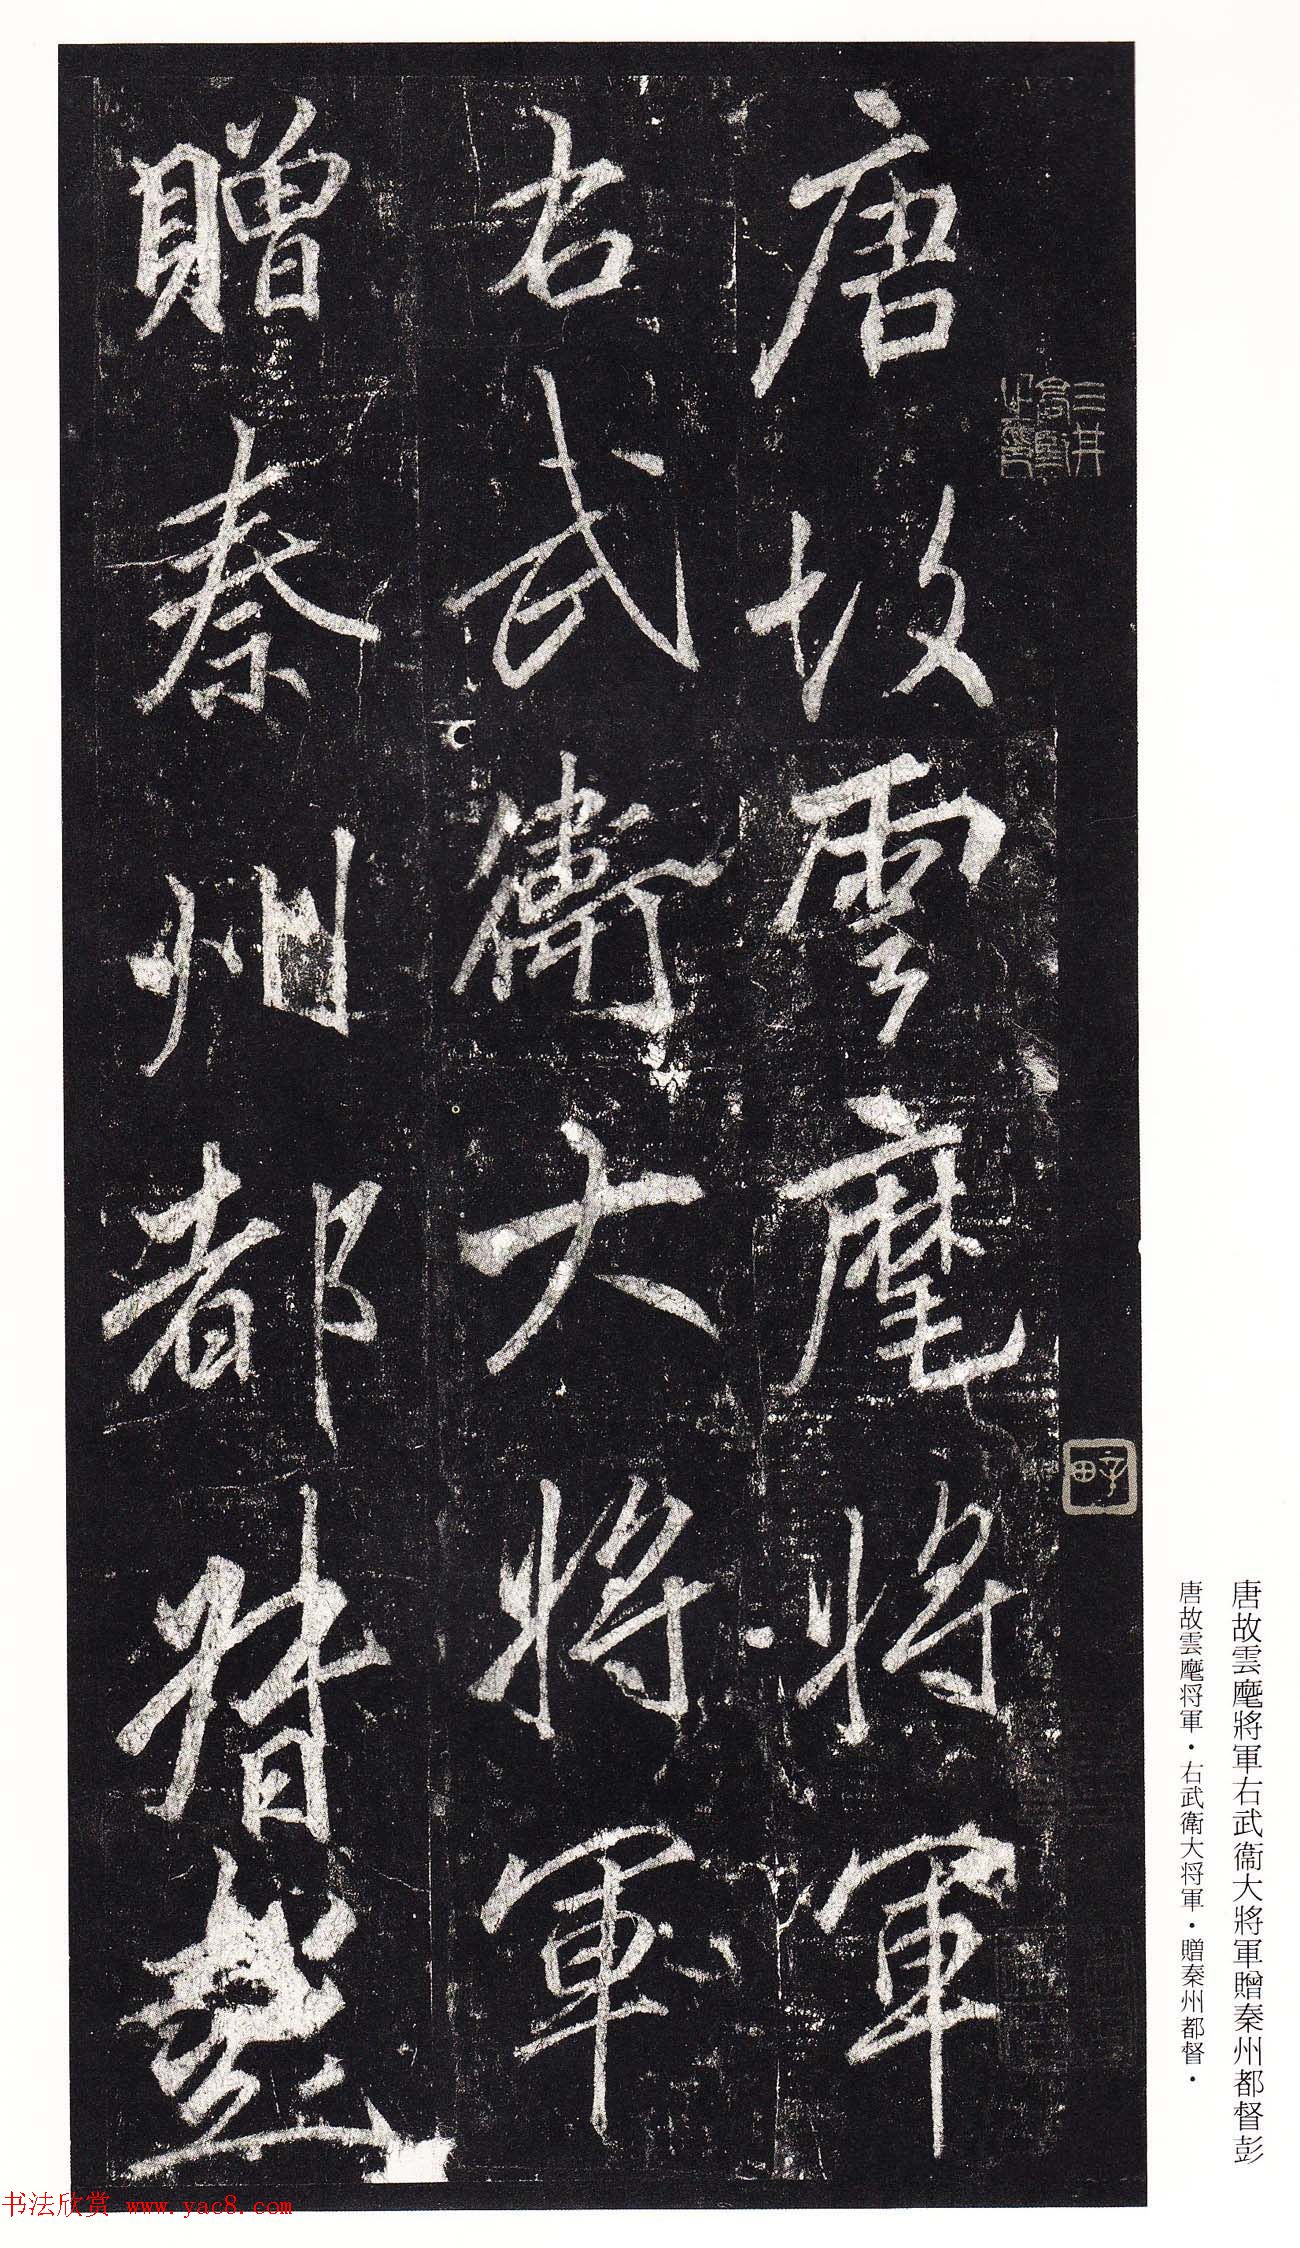 唐故雲麾將軍
右武衛大將軍
贈秦州都督彭
三井
唐故雲麾將軍右武衞大將軍贈秦州都督彭
唐故雲麾将軍・右武衛大将軍・贈秦州都督・
书法欣赏 www.yac8.com